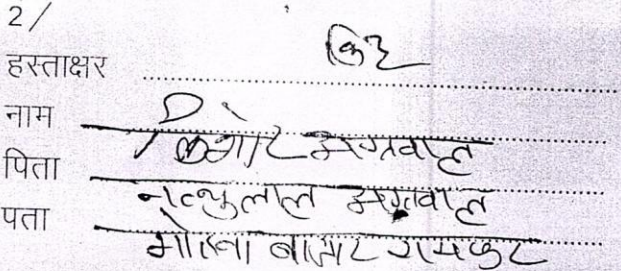 2/
हस्ताक्षर
नाम किशोर अग्रवाल
पिता नत्थुलाल अग्रवाल
पता बाजार